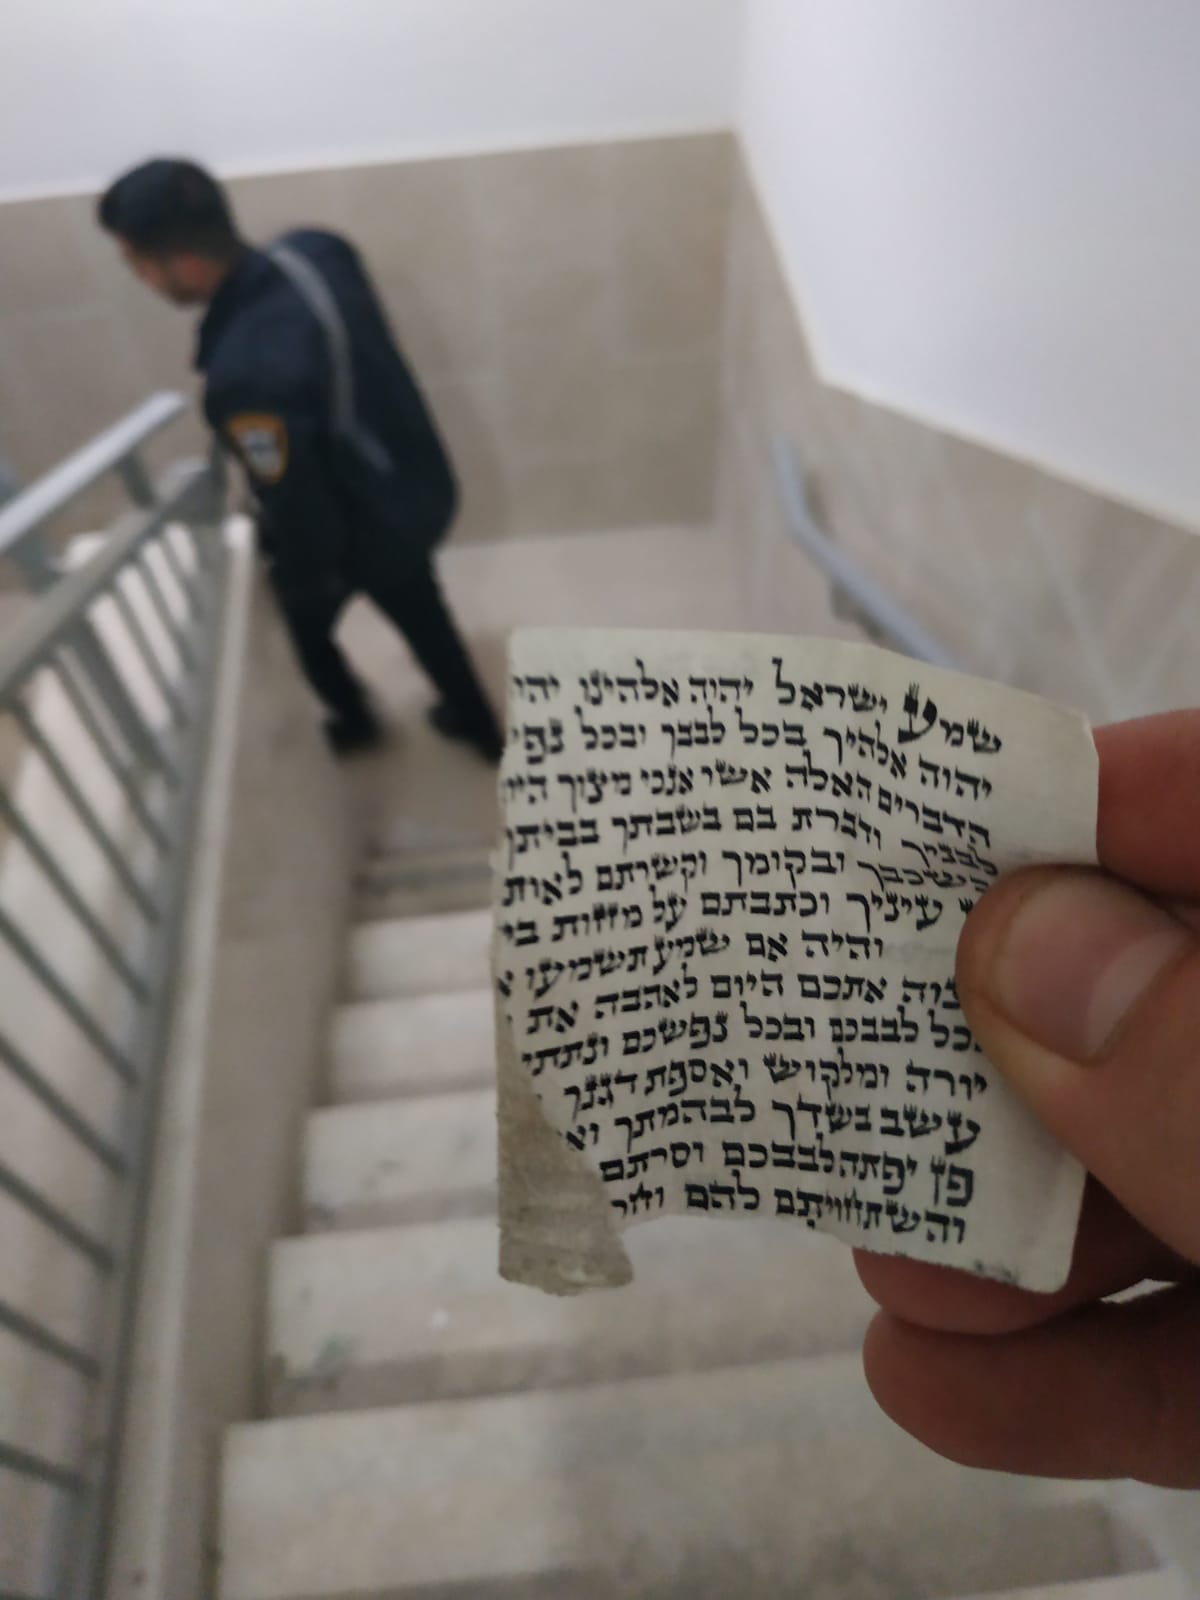 שמע ישראל יהוה אלהינו יהו
יהוה אלהיך בכל לבבך ובכל נפ
הדברים האלה אשר אנכי מצוך היו
לבניך ודברת בם בשבתך בביתך
בשכבך ובקומך וקשרתם לאות
עיניך וכתבתם על מזזות בי
והיה אם שמע תשמעו א
צוה אתכם היום לאהבה את
בכל לבבכם ובכל נפשכם ונתתי
יורה ומלקוש ואספת דגנך
עשב בשדך לבהמתך וא
פן יפתה לבבכם וסרתם
והשתחויתם להם וחר